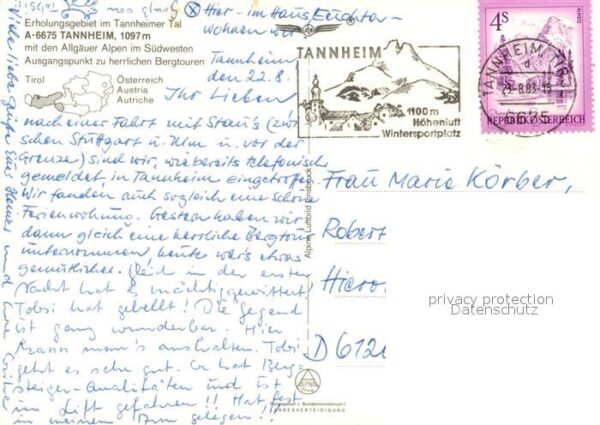 Hier - im Haus
wohnen wir
Erholungsgebiet im Tannheimer Tal
A-6675 TANNHEIM, 1097 m
mit den Allgäuer Alpen im Südwesten
Ausgangspunkt zu herrlichen Bergtouren
Tirol
Österreich
Austria
Autriche
Tannheim
den 22.8.
Ihr Lieben
nach einer Fahrt mit Stau's (zwi-
schen Stuttgart u. Ulm u. vor der
Grenze) sind wir, wie bereits telefonisch
gemeldet, in Tannheim eingetroffen.
Wir fanden auch sogleich eine schöne
Ferienwohnung. Gestern haben wir
dann gleich eine herrliche Bergtour
unternommen, heute war's etwas
gemütlicher. Gleich in der ersten
Nacht hat es mächtig gewittert!
Tobsi hat gebellt! Die Gegend
ist ganz wunderbar. Hier
kann man's aushalten. Tobsi
geht es sehr gut. Er hat Berg-
steiger-Qualitäten und ist
im Lift gefahren!! Hat fest
in meinem Arm gelegen!!
Viele liebe Grüße Eure
und Eure
TANNHEIM
1100 m
Höhenluft
Wintersportplatz
TANNHEIM, TIROL
23.-8.83-15
4S
REPUBLIK ÖSTERREICH
Alpine Luftbild Innsbruck
Frau Maria Körber,
Robert
Hiero
D 6121
privacy protection
Datenschutz
LANDESVERTEIDIGUNG